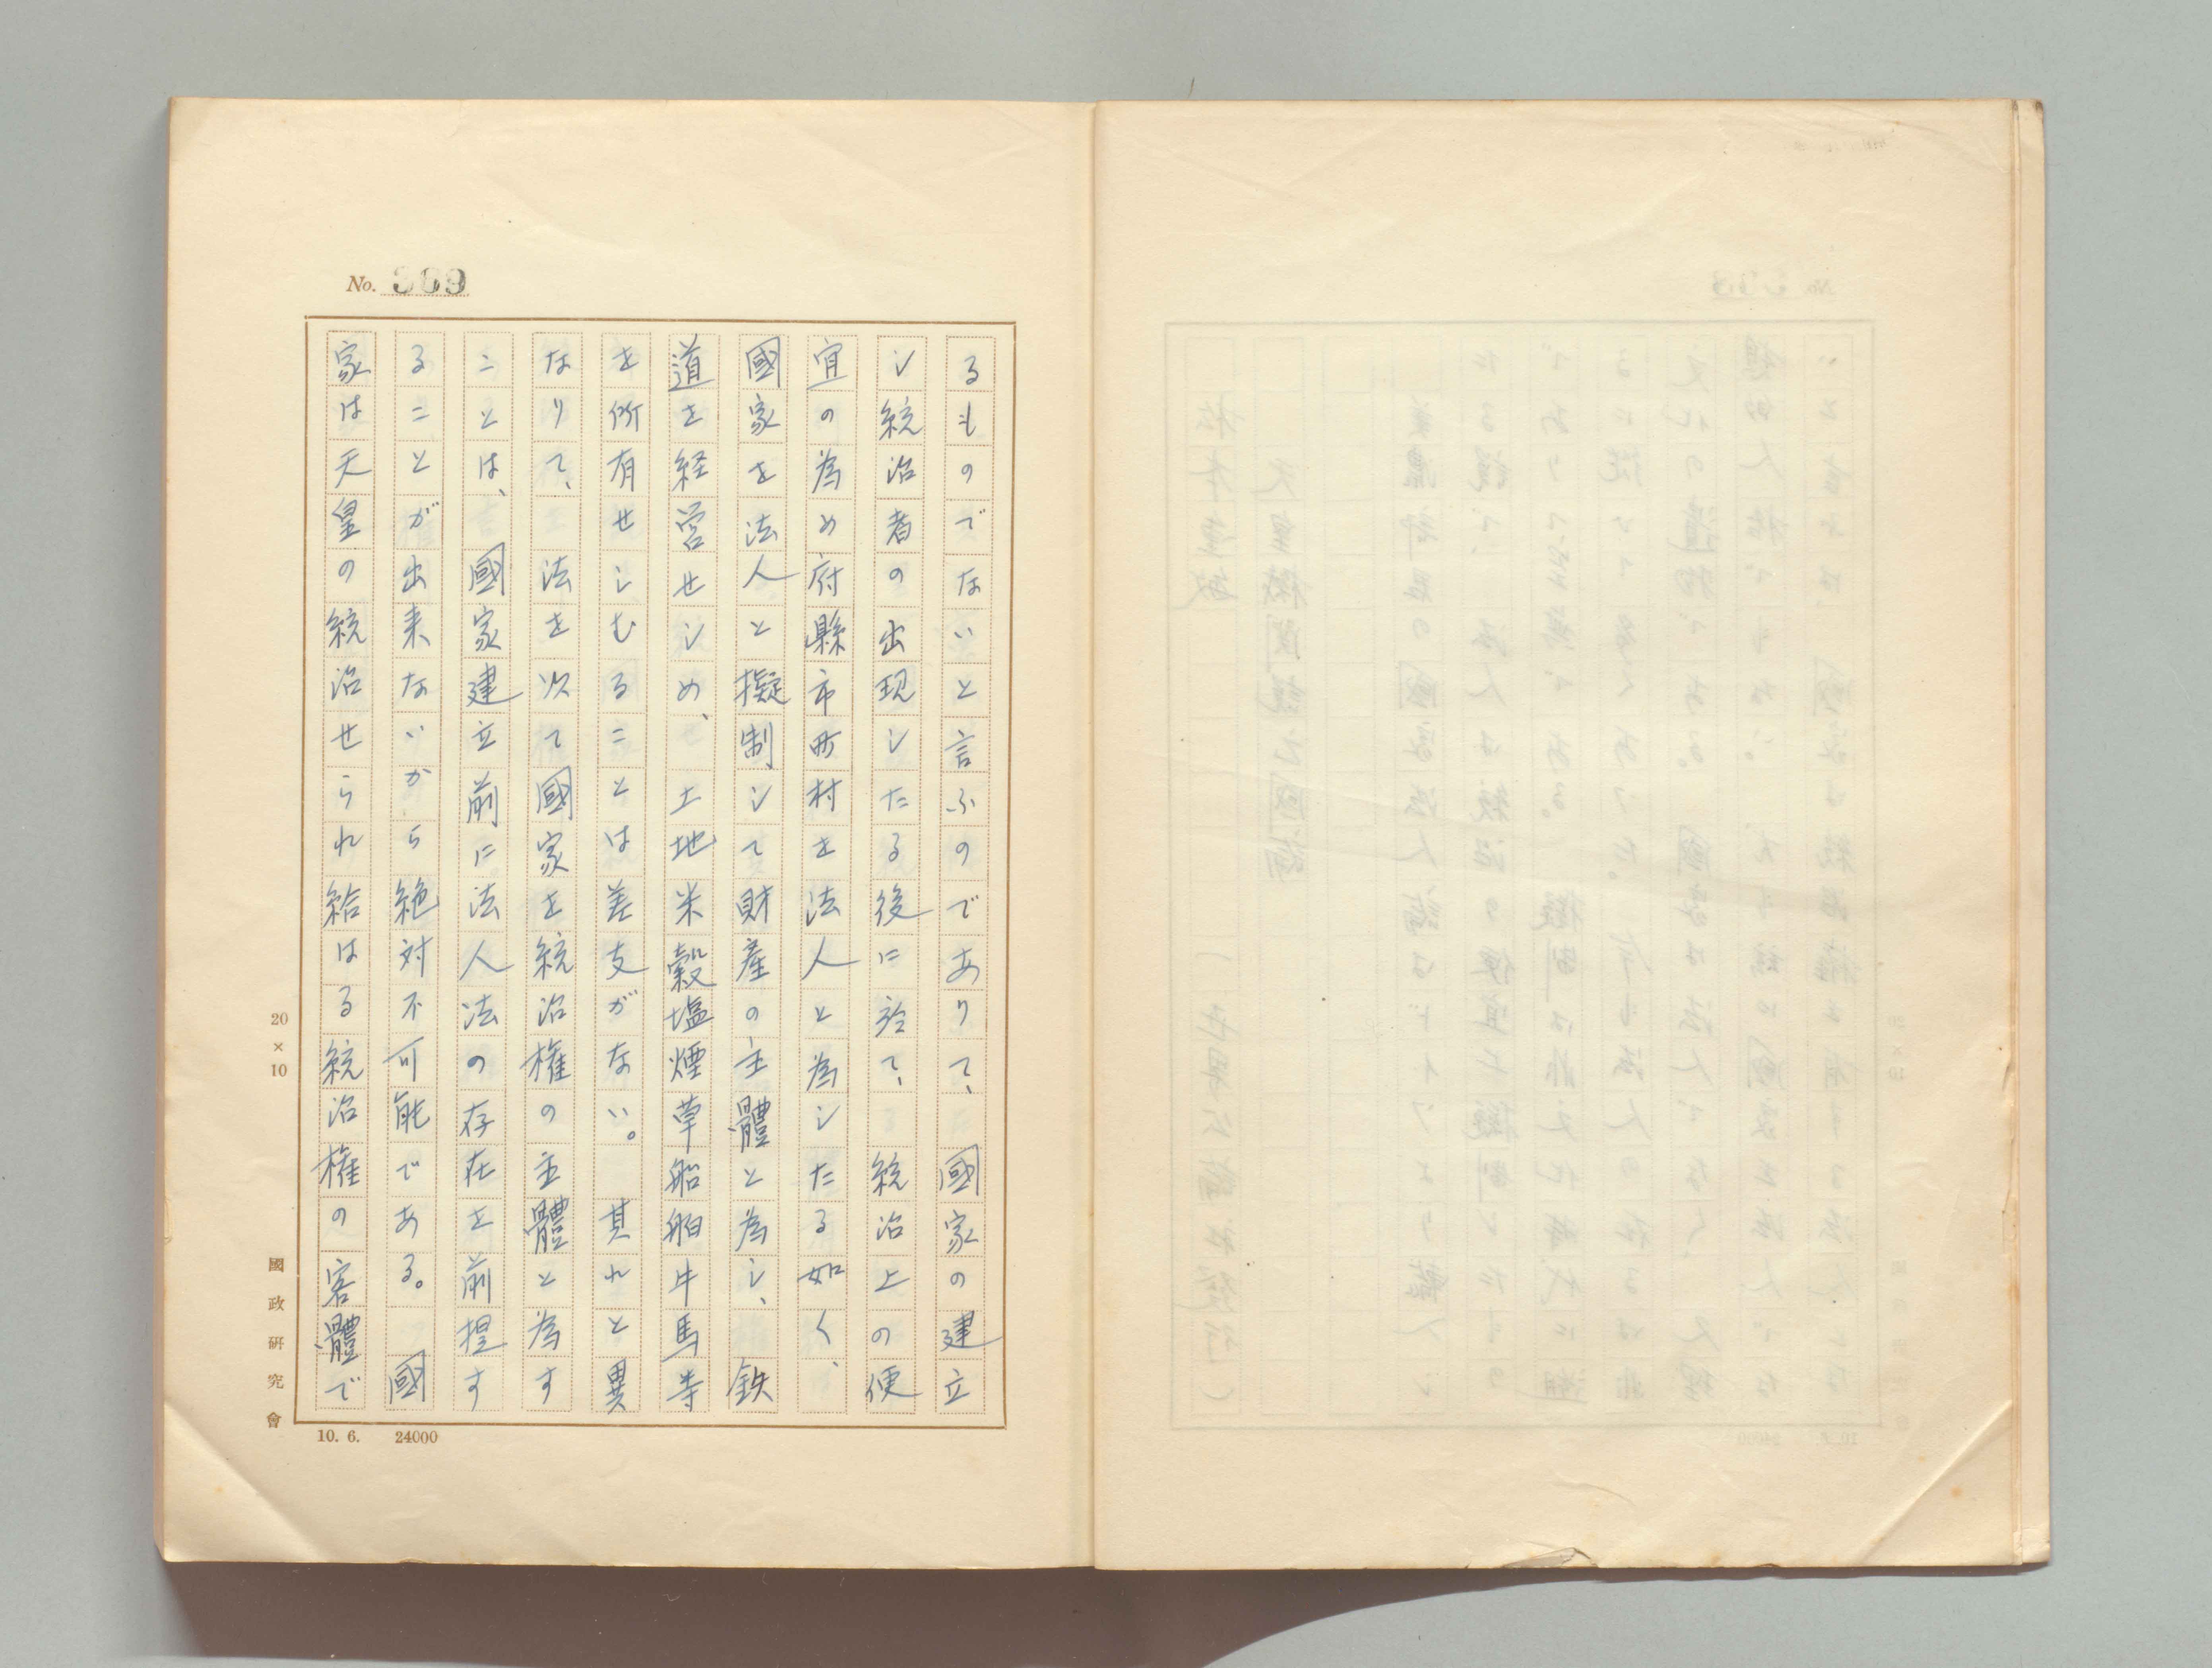 No. 369
るものでないと言ふのでありて、國家の建立
し統治者の出現したる後に於て、統治上の便
宜の為め府縣市町村を法人と為したる如く、
國家を法人と擬制して財産の主體と為し、鉄
道を経営せしめ、土地米穀塩煙草船舶牛馬等
を所有せしむることは差支がない。其れと異
なりて、法を以て國家を統治権の主體と為す
ことは、國家建立前に法人法の存在を前提す
ることが出来ないから絶対不可能である。國
家は天皇の統治せられ給はる統治権の客體で
20×10
國政研究會
10. 6. 24000